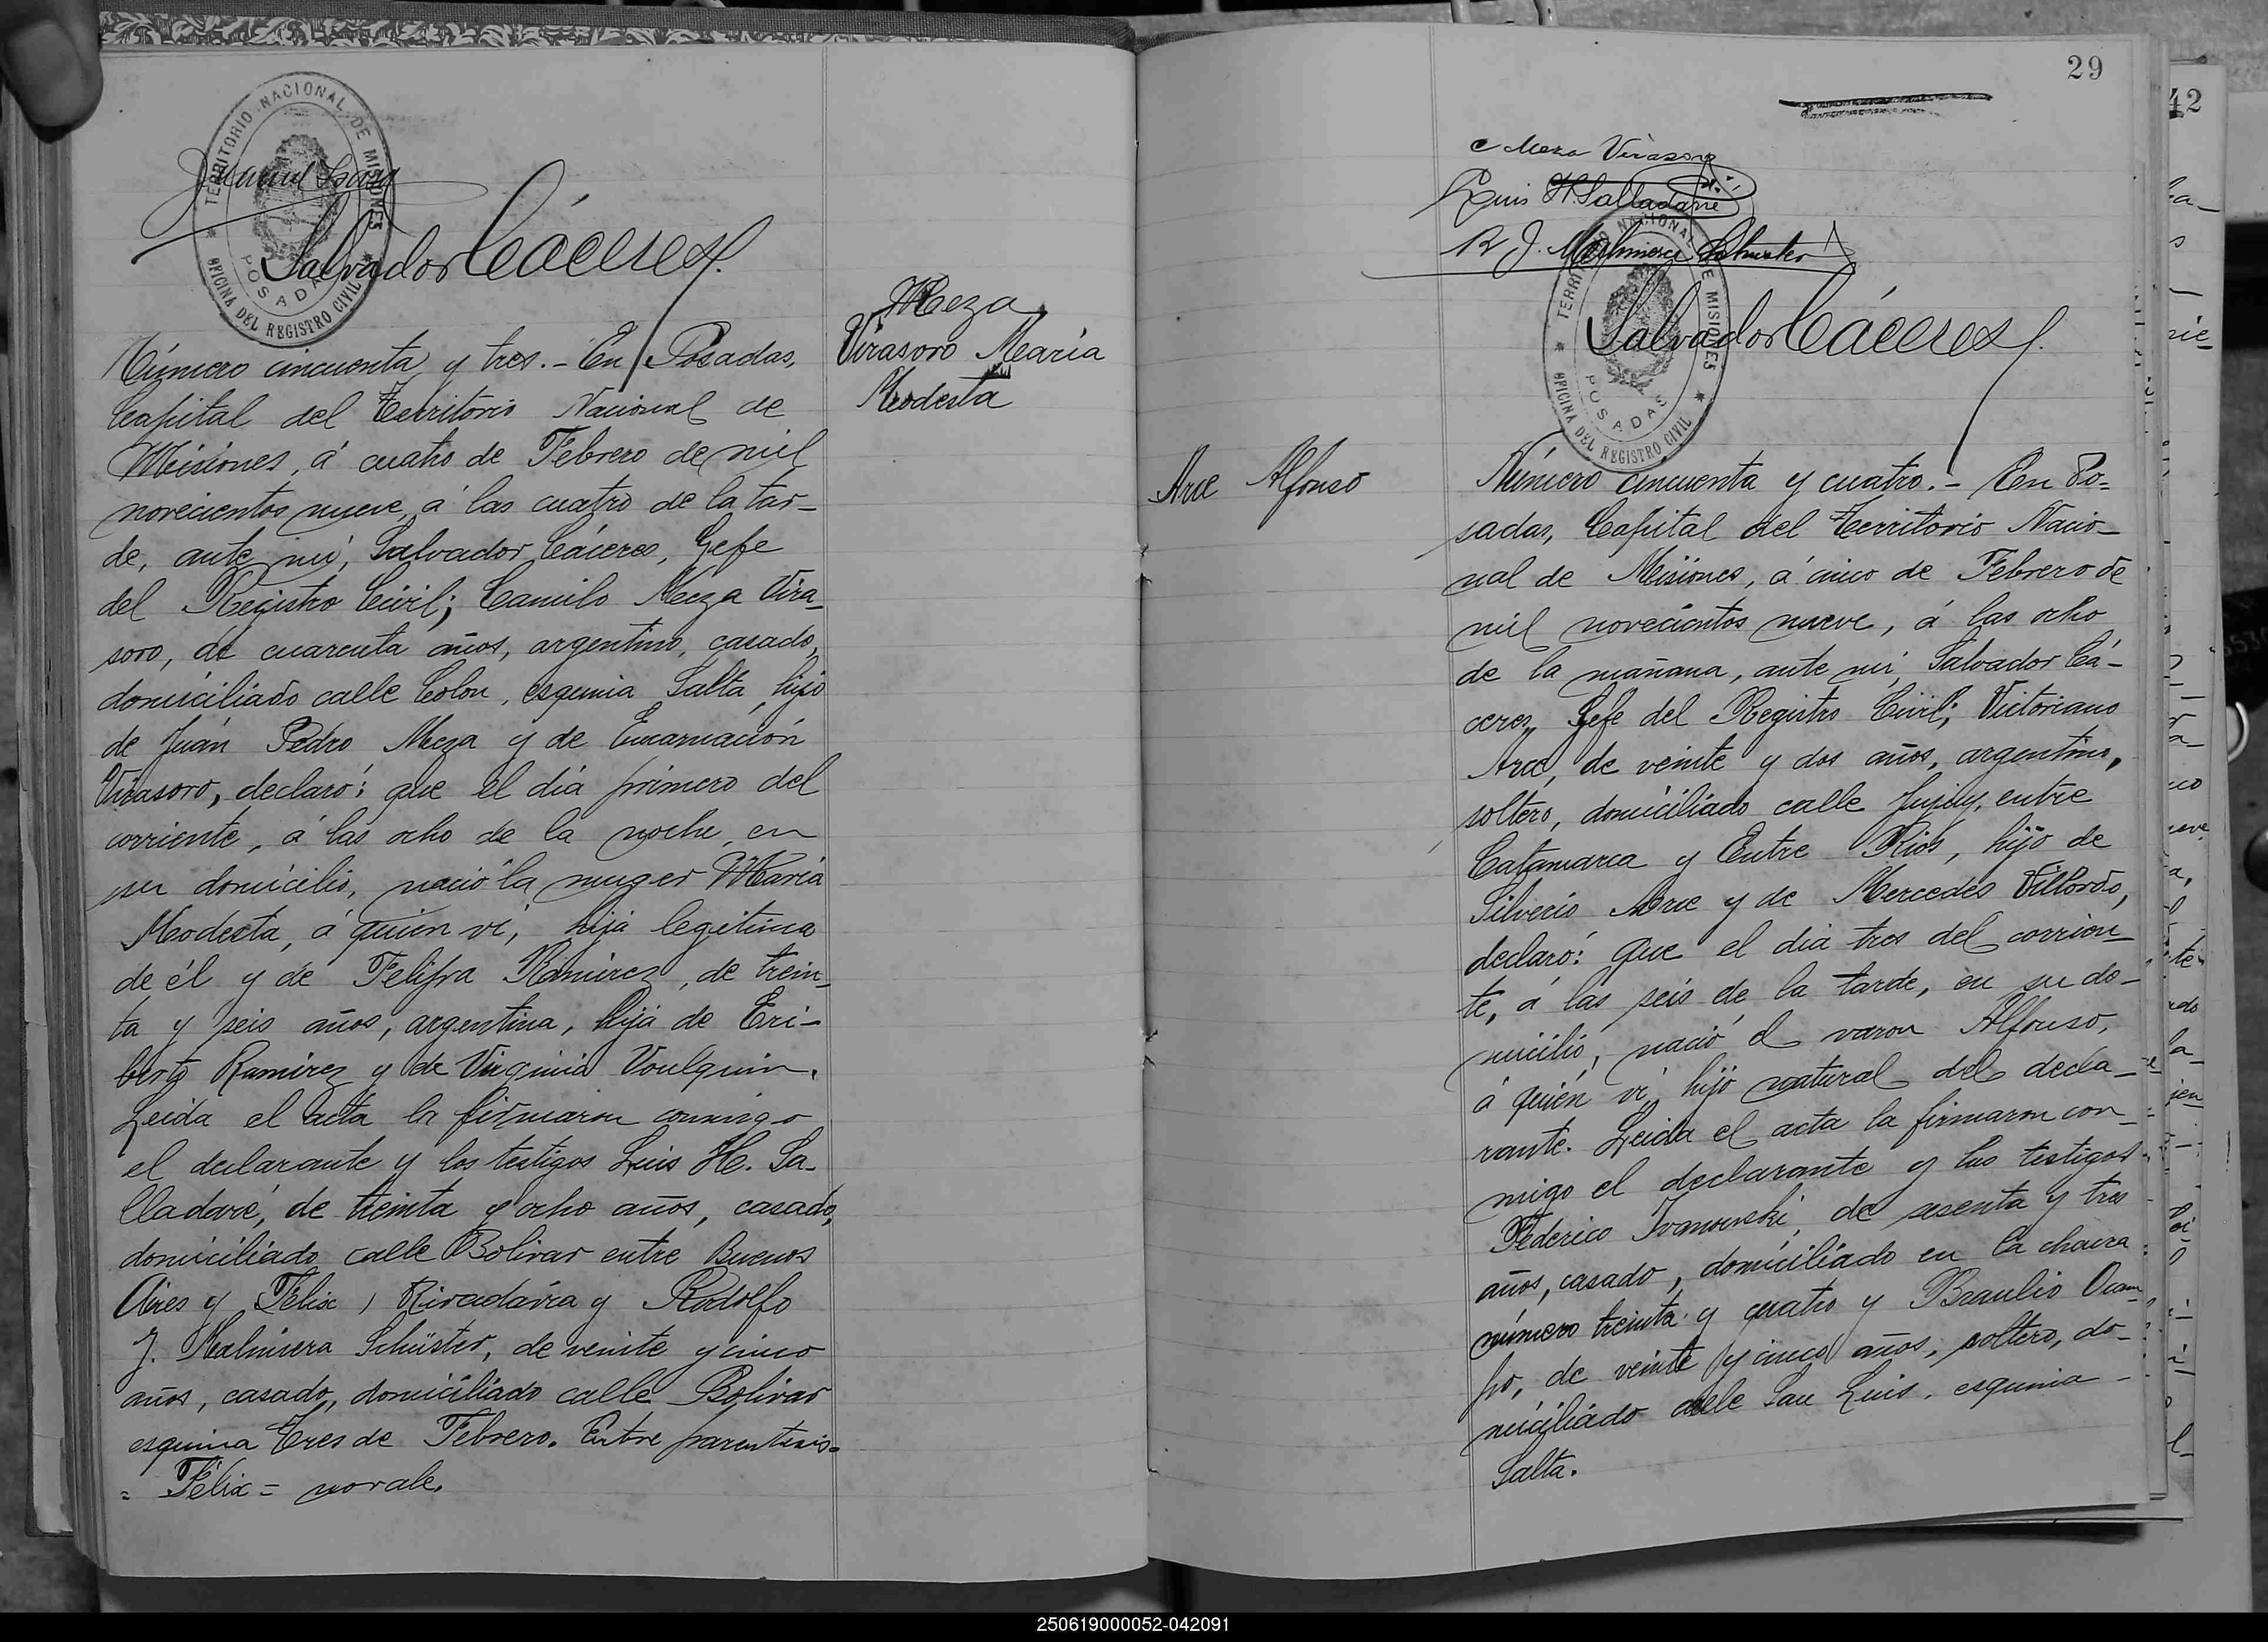 TERRITORIO NACIONAL DE MISIONES
POSADAS
OFICINA DEL REGISTRO CIVIL
Salvador Cáceres
Meza
Virasoro María
Modesta
Número cincuenta y tres.- En Posadas,
Capital del Territorio Nacional de
Misiones, á cuatro de Febrero de mil
novecientos nueve, á las cuatro de la tar-
de, ante mí, Salvador Cáceres, Gefe
del Registro Civil; Camilo Meza Vira-
soro, de cuarenta años, argentino, casado,
domiciliado calle Colon, esquina Salta, hijo
de Juán Pedro Meza y de Encarnación
Virasoro, declaró: que el día primero del
corriente, á las ocho de la noche, en
su domicilio, nació la muger María
Modesta, á quien ví, hija legítima
de él y de Felipa Ramirez, de trein-
ta y seis años, argentina, hija de Eri-
berto Ramirez y de Virginia Voulquin.
Leida el acta la firmaron conmigo
el declarante y los testigos Luis H. Sa-
lladarré, de treinta y ocho años, casado,
domiciliado calle Bolivar entre Buenos
Aires y Felix, Rivadávia y Rodolfo
J. Malmiera Schüster, de veinte y cinco
años, casado, domiciliado calle Bolivar
esquina Tres de Febrero. Entre parentesis=
= Félix = no vale.
29
42
C Meza Virasoro
Luis H. Salladarré
R J. Malmiera Schuster
TERRITORIO NACIONAL DE MISIONES
POSADAS
OFICINA DEL REGISTRO CIVIL
Salvador Cáceres
Arce Alfonso
Número cincuenta y cuatro.- En Po=
sadas, Capital del Territorio Nacio-
nal de Misiones, á cinco de Febrero de
mil novecientos nueve, á las ocho
de la mañana, ante mí, Salvador Cá-
ceres, Gefe del Registro Civil; Victoriano
Arce, de veinte y dos años, argentino,
soltero, domiciliado calle Jujuy, entre
Catamarca y Entre Rios, hijo de
Silverio Arce y de Mercedes Villordo,
declaró: que el día tres del corrien-
te, á las seis de la tarde, en su do-
micilio, nació el varon Alfonso,
á quién ví, hijo natural del decla-
rante. Leida el acta la firmaron con-
migo el declarante y los testigos
Federico Ivanowski, de sesenta y tres
años, casado, domiciliado en la chacra
número treinta y cuatro y Braulio Ocam-
po, de veinte y cinco años, soltero, do-
miciliado calle San Luis, esquina
Salta.
250619000052-042091